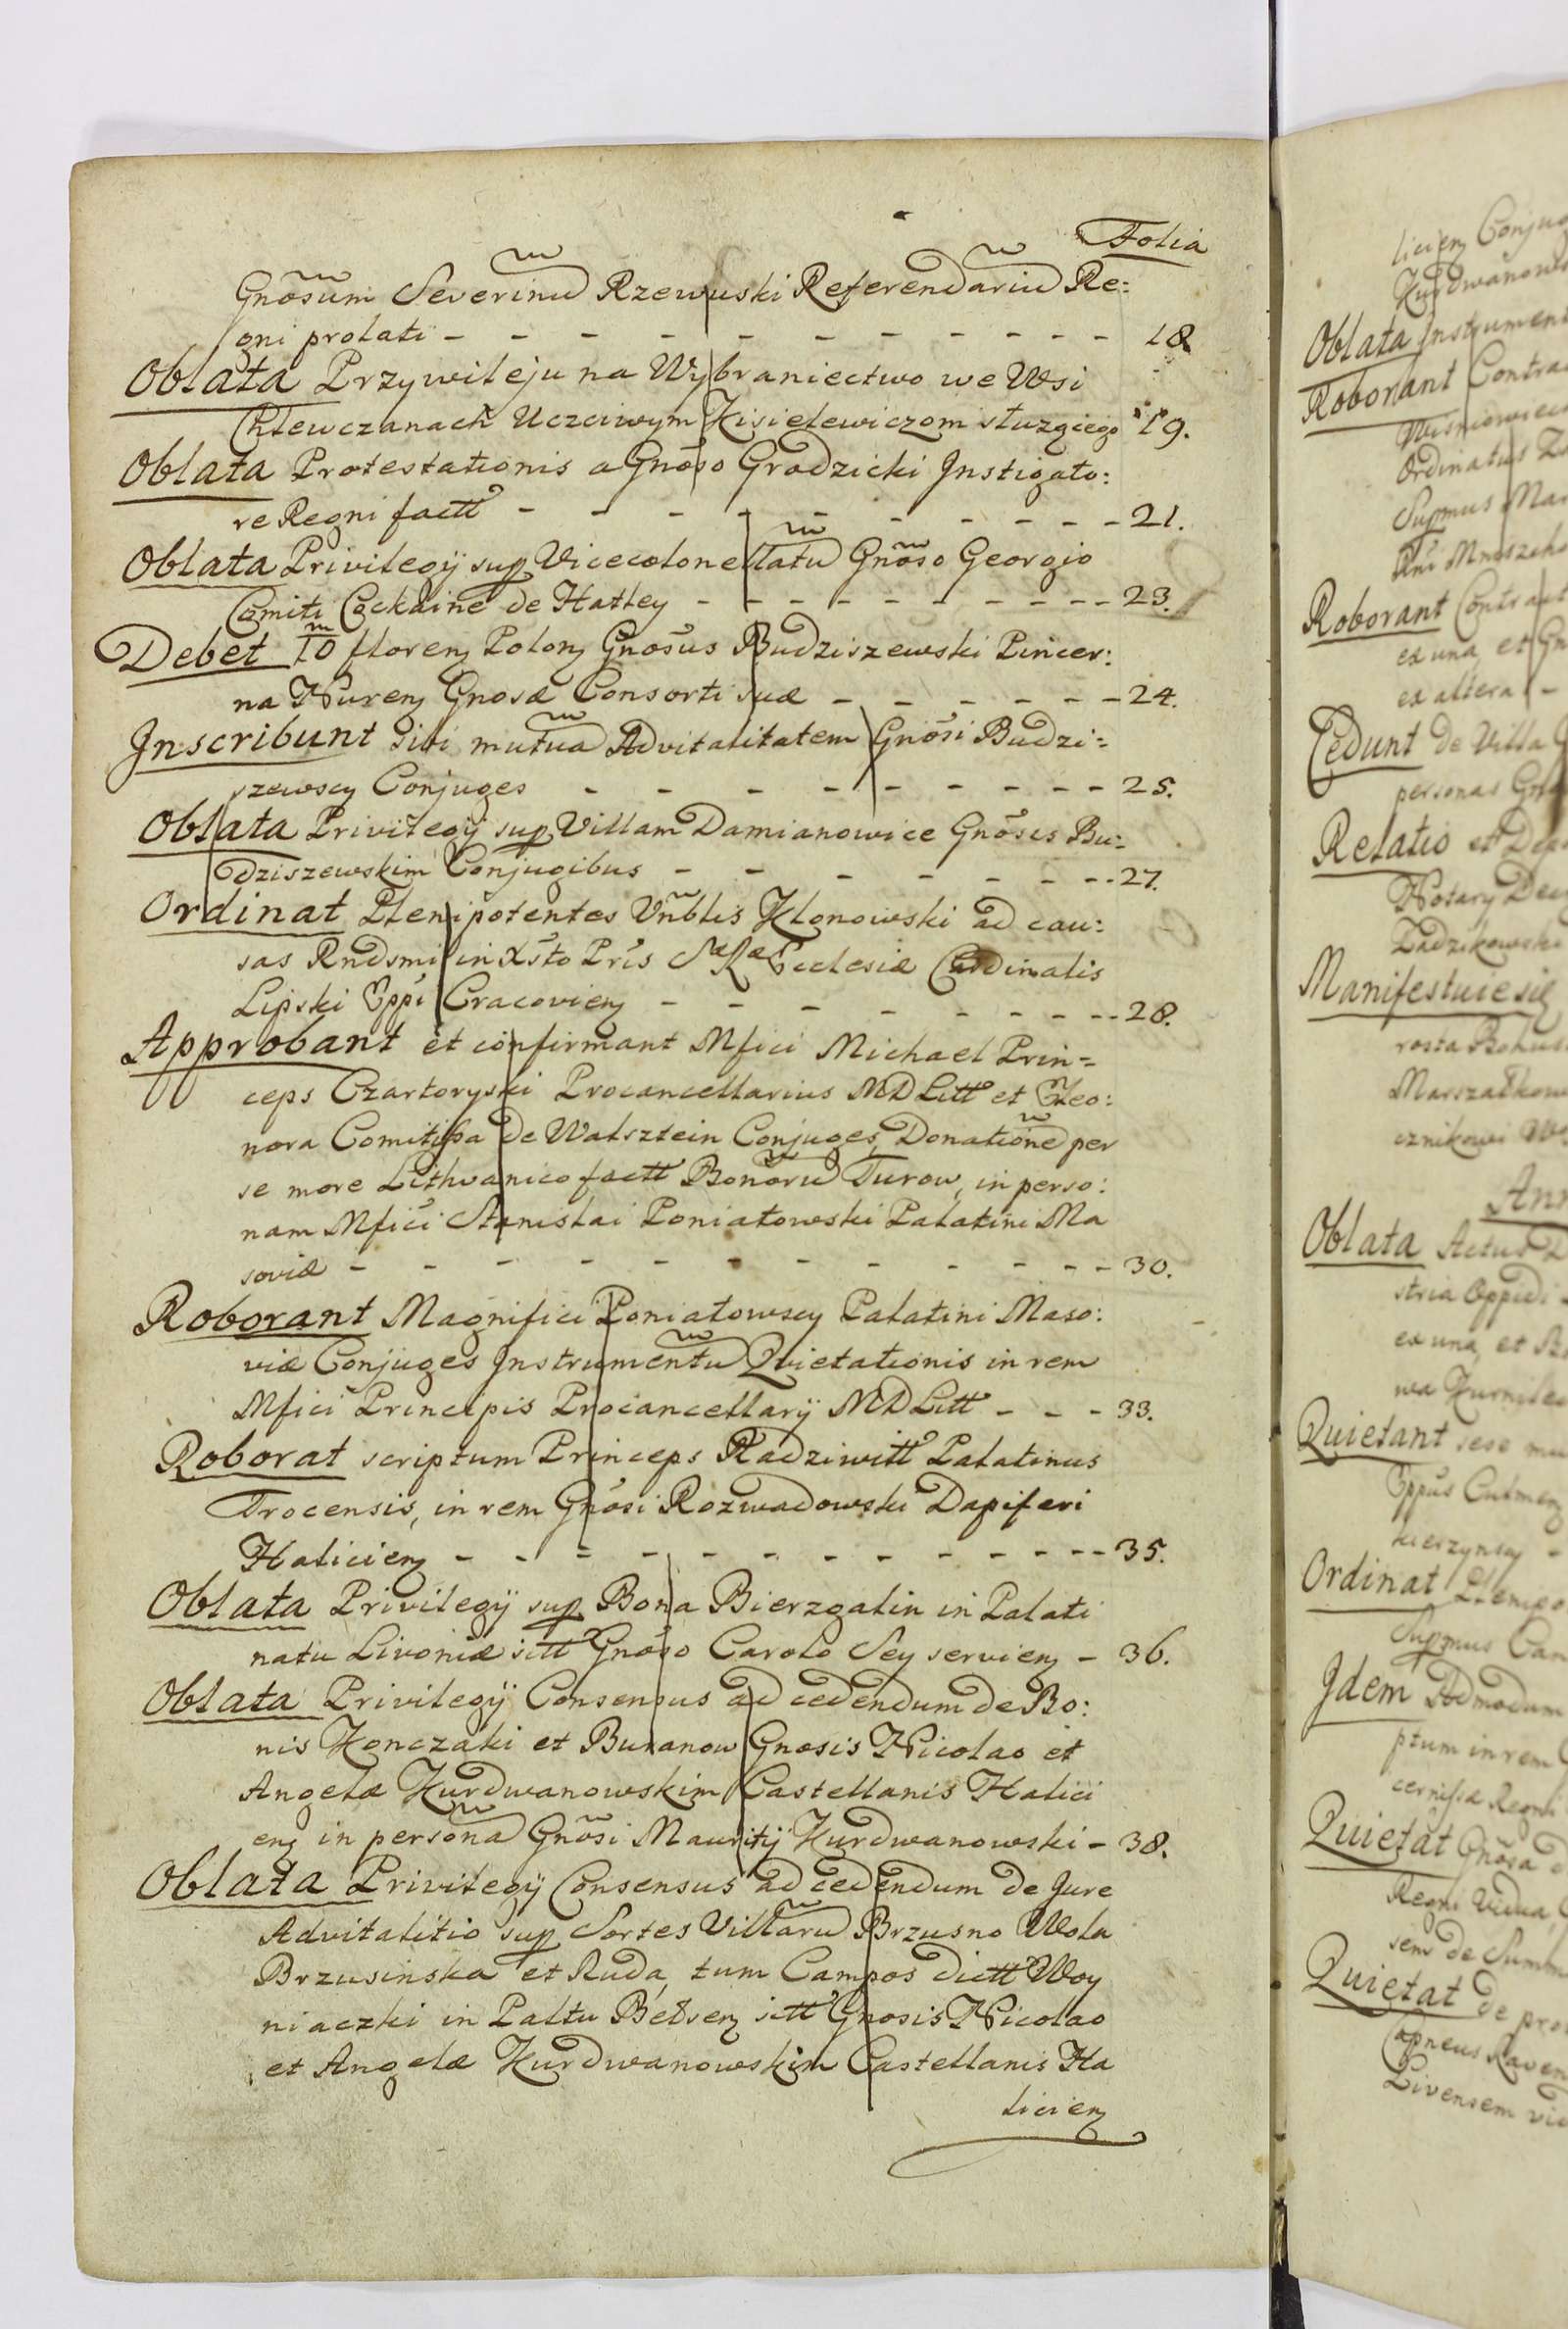 Folia
Gnosum Severinū Rzewuski Referendariū Re:
gni prolati - - - - - - - - - - 18
Oblata Przywileju na Wybraniectwo we Wsi
Chlewczanach Uczciwym Kisielewiczom służącego 19.
Oblata Protestationis a Gnōso Grodzicki Jnstigato:
re Regni factt - - - - - - - - - 21.
Oblata Privilegÿ sup Vicecolonellatū Gnōso Georgio
Comiti Cockaine de Hatley - - - - - - - - - 23.
Debet 10 floren Polon Gnosus Budziszewski Pincer:
na Nuren Gnosæ Consorti suæ - - - - - - 24.
Jnscribunt sibi mutuā Advitalitatem Gnōsi Budzi=
szewscy Conjuges - - - - - - - - - 25.
Oblata Privilegÿ sup Villam Damianowice Gnōsis Bu:
dziszewskim Conjugibus - - - - - - - - 27.
Ordinat Plenipotentes Vnblis Klonowski ad cau:
sas Rndsmi in Xsto Pris Sæ Ræ Ecclesiæ Cardinalis
Lipski Eppi Cracovien - - - - - - - - 28.
Approbant et confirmant Mfici Michael Prin=
ceps Czartoryski Procancellarius MD Litt et Eleo:
nora Comitissa de Walsztein Conjuges, Donationē per
se more Lithvanico factt Bonorū Turow, in perso:
nam Mfici Stanislai Poniatowski Palatini Ma
soviæ - - - - - - - - - - - - 30.
Roborant Magnifici Poniatowscy Palatini Maso:
viæ Conjuges Jnstrumentū Quietationis in rem
Mfici Principis Procancellarÿ MD Litt - - - 33.
Roborat scriptum Princeps Radziwiłł Palatinus
Trocensis, in rem Gnōsi Rozwadowski Dapiferi
Halicien - - - - - - - - - - - 35.
Oblata Privilegÿ sup Bona Bierzgalin in Palati
natu Livoniæ sitt Gnōso Carolo Sey servien - 36.
Oblata Privilegÿ Consensus ad cedendum de Bo:
nis Konczaki et Bukanow Gnosis Nicolao et
Angelæ Kurdwanowskim Castellanis Halici
en in personā Gnōsi Mauritÿ Kurdwanowski - 38.
Oblata Privilegÿ Consensus ad cedendum de Jure
Advitalitio sup Sortes Villarū Brzusno Wola
Brzusinska et Ruda, tum Campos dictt Woy
niaczki in Palttu Belsen sitt Gnosis Nicolao
et Angelæ Kurdwanowskim Castellanis Ha
licien
licien Conjug
Kurdwanows
Oblata Jnstrument
Roborant Contrac
Wisniowiec
Ordinatus Za
Supmus Mar
Mniszeh
Roborant Contract
ex una, et Gn
ex altera -
Cedunt de Villa
personas Gno
Relatio et
Notary Dec
Zadzikowski
Manifestuie się
rosta Bohus
Marszałkow
cznikowi Wo
Ann
Oblata Actus
stria Oppidi
ex una, et
Quietant sese mu
Eppus Culmen
Ordinat Plenipo
Supmus Can
Jdem Admodum
ptum in rem
Regni
Quietat Gnōsa
Regni Vidua,
sens de Summ
Quietat de pro
Livensem vic